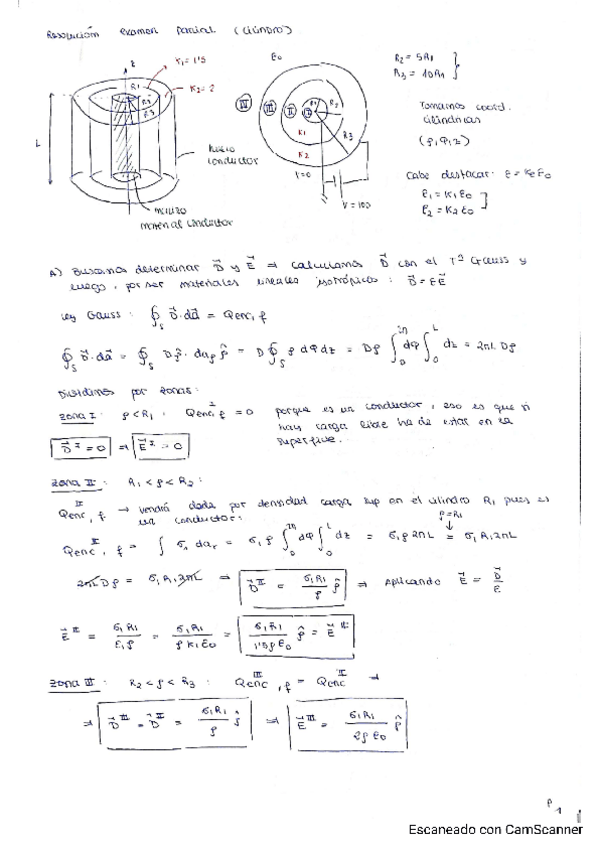 Resolución examen parcial (cilindro)
K₁ = 1'5
K₂ = 2
z
R₁
R₂
R₃
L
hueco conductor
macizo
material conductor
ε₀
IV III II I
R₁
R₂
R₃
K₁
K₂
V=0
V = 100
R₂ = 5R₁
R₃ = 10R₁
Tomamos coord.
cilíndricas
(ρ, φ, z)
Cabe destacar: ε = Kε ε₀
ε₁ = K₁ε₀
ε₂ = K₂ε₀
A) Buscamos determinar D⃗ y E⃗ ⇒ calculamos D⃗ con el Tª Gauss y
luego, por ser materiales lineales isotrópicos: D⃗ = εE⃗
Ley Gauss: ∮ₛ D⃗·da⃗ = Qenc,f
∮ₛ D⃗·da⃗ = ∮ₛ Dρ̂·daρ ρ̂ = D∮ₛ ρ dφ dz = Dρ ∫₀^2π dφ ∫₀^L dz = 2πL Dρ
Dividimos por zonas:
zona I: ρ < R₁, Q^I enc,f = 0 porque es un conductor, eso es que si
hay carga libre ha de estar en la
superficie.
D⃗^I = 0 ⇒ E⃗^I = 0
zona II: R₁ < ρ < R₂:
Q^II enc,f → vendrá dada por densidad carga sup en el cilindro R₁ pues es
un conductor:
ρ=R₁
Q^II enc,f = ∫ σ₁ daᵣ = σ₁ρ ∫₀^2π dφ ∫₀^L dz = σ₁ρ 2πL = σ₁R₁2πL
2πL Dρ = σ₁R₁2πL ⇒ D⃗^II = σ₁R₁/ρ ρ̂ ⇒ Aplicando E⃗ = D⃗/ε
E⃗^II = σ₁R₁/ε₁ρ = σ₁R₁/ρK₁ε₀ = σ₁R₁/1'5ρε₀ ρ̂ = E⃗^II
zona III: R₂ < ρ < R₃: Q^III enc,f = Q^II enc ⇒
⇒ D⃗^III = D⃗^II = σ₁R₁/ρ ρ̂ ⇒ E⃗^III = σ₁R₁/2ρε₀ ρ̂
P₁
Escaneado con CamScanner